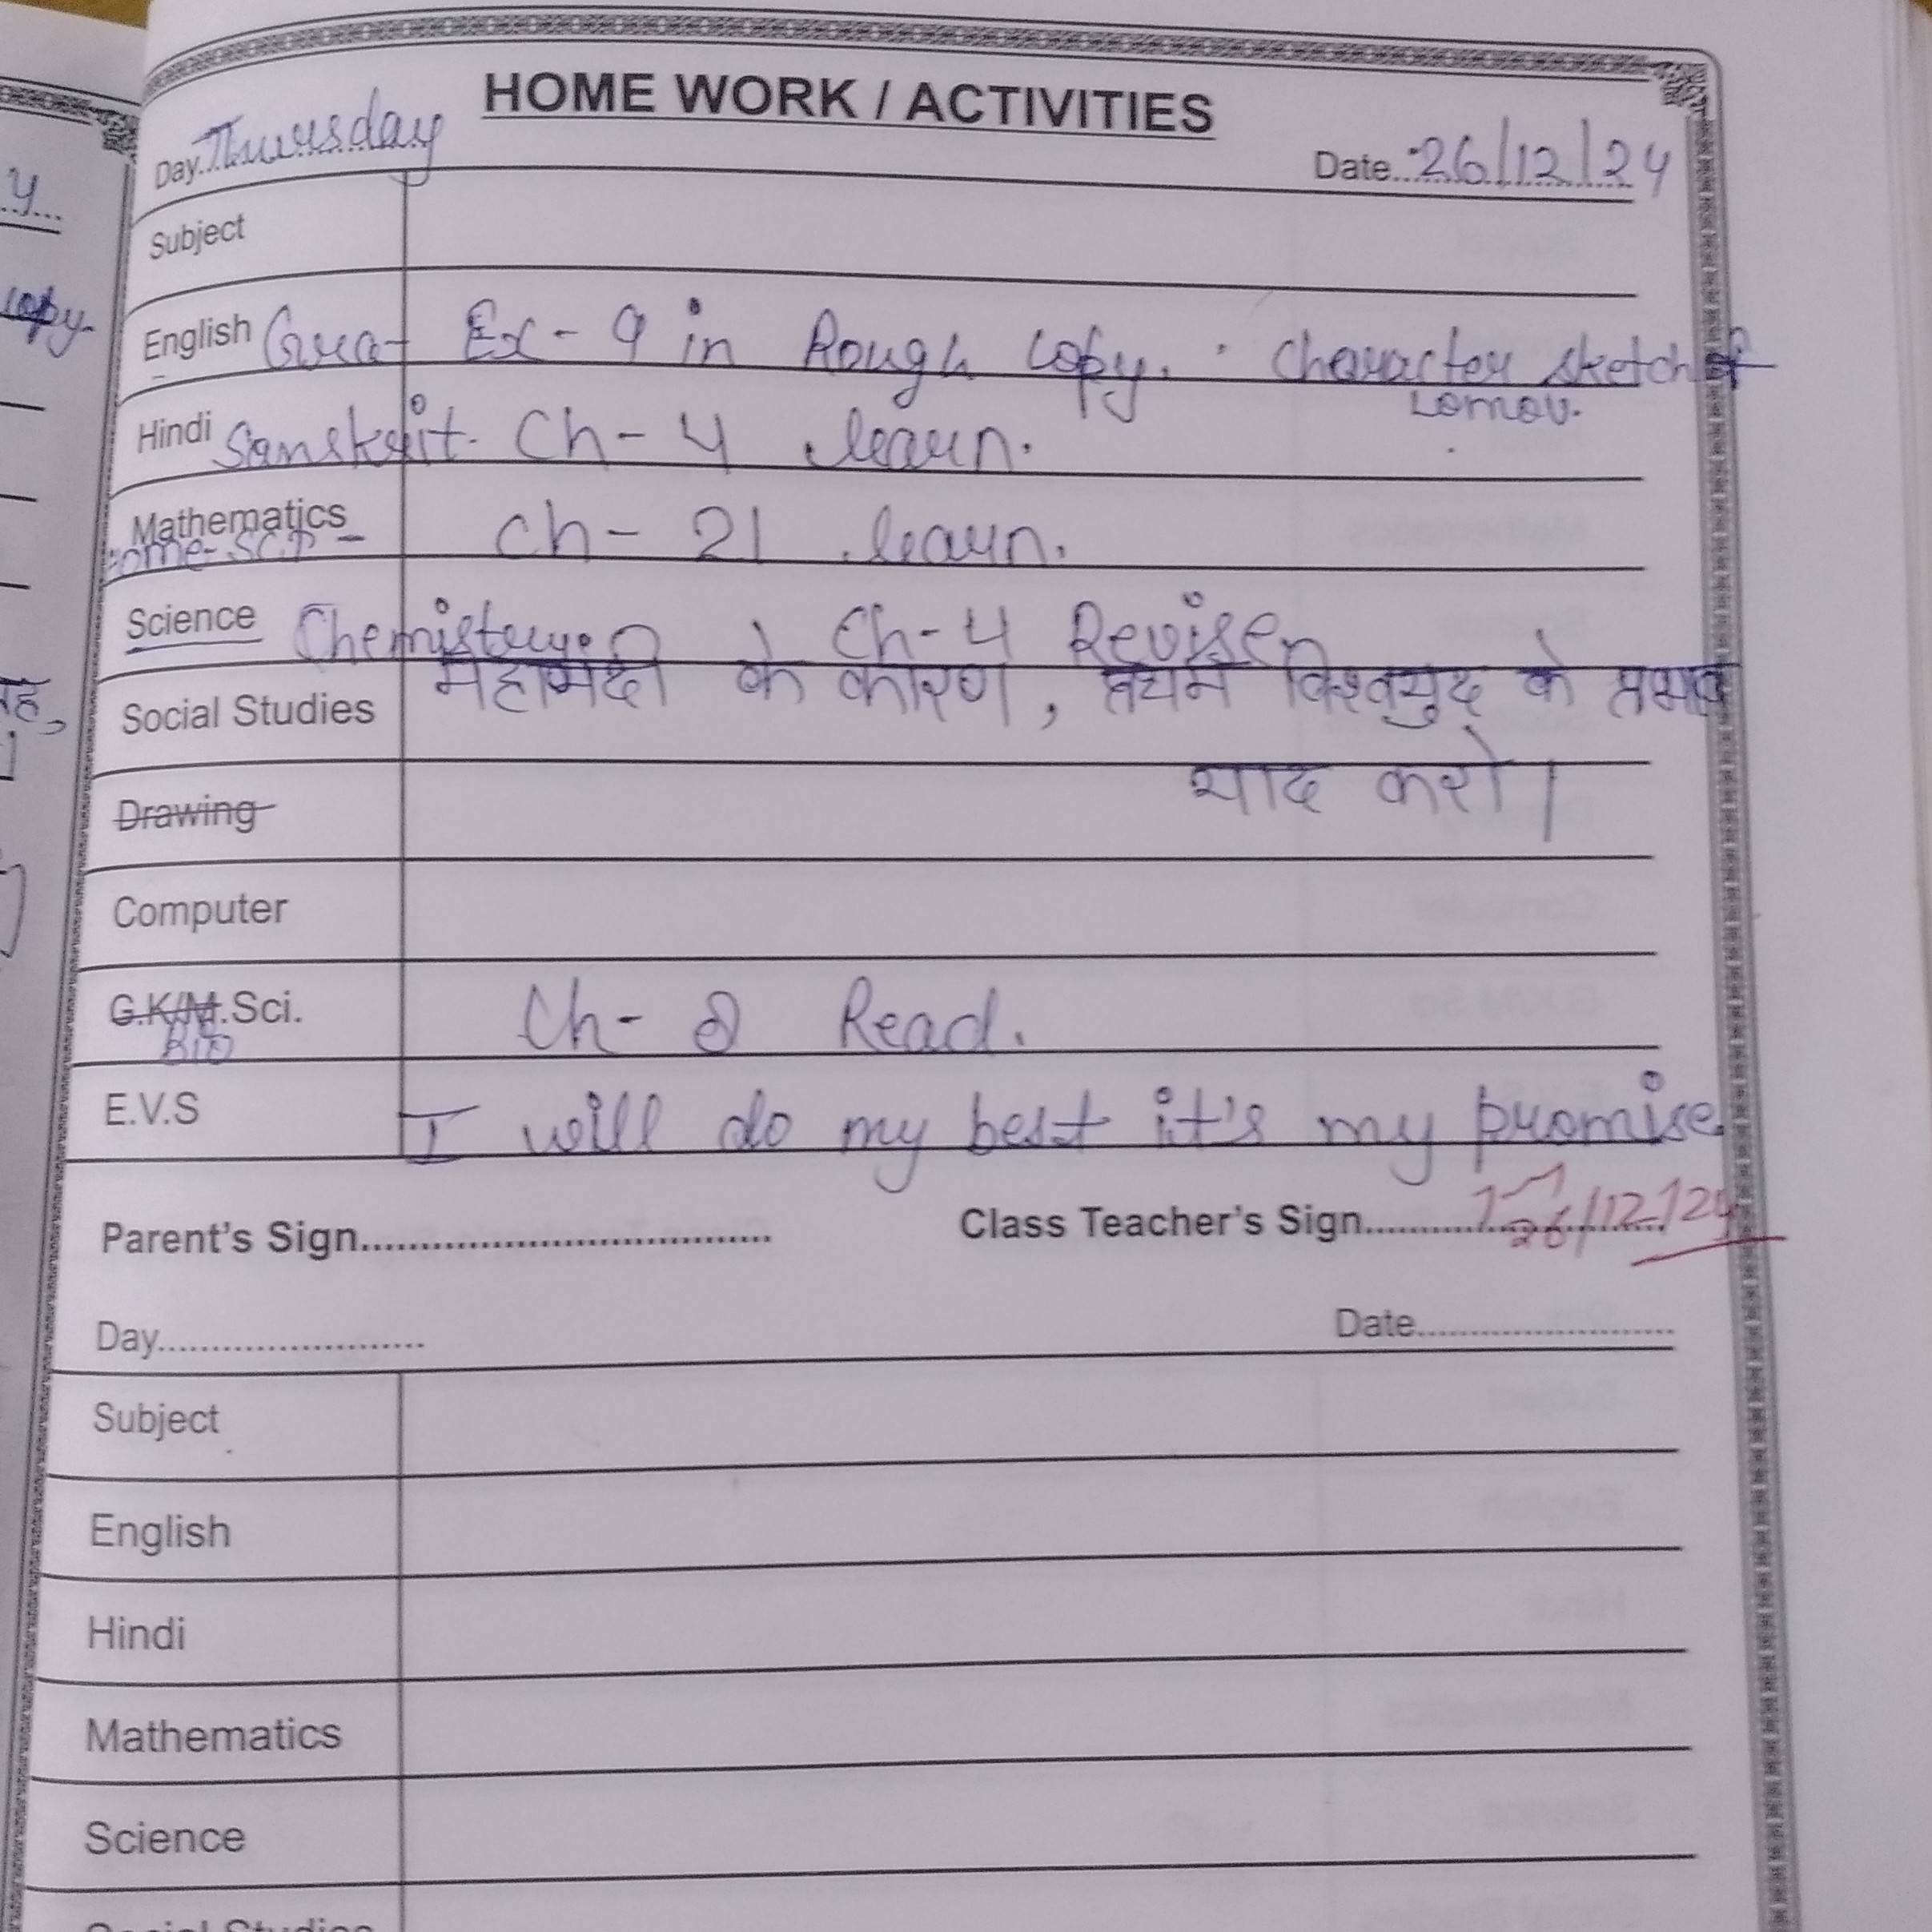 HOME WORK / ACTIVITIES
Day Thursday Date 26/12/24
Subject
English Gra- Ex-9 in Rough copy. Character sketch of
Lomov.
Hindi Sanskrit. Ch-4 learn.
Mathematics
ch-21 learn.
Science Chemistry Ch-4 Revise
Social Studies महामंदी के कारण, प्रथम विश्वयुद्ध के
याद करो।
Drawing
Computer
G.K/M.Sci. Ch-8 Read.
Bio
E.V.S I will do my best it's my promise
Parent's Sign Class Teacher's Sign 26/12/24
Day Date
Subject
English
Hindi
Mathematics
Science
Social Studies
y
copy.